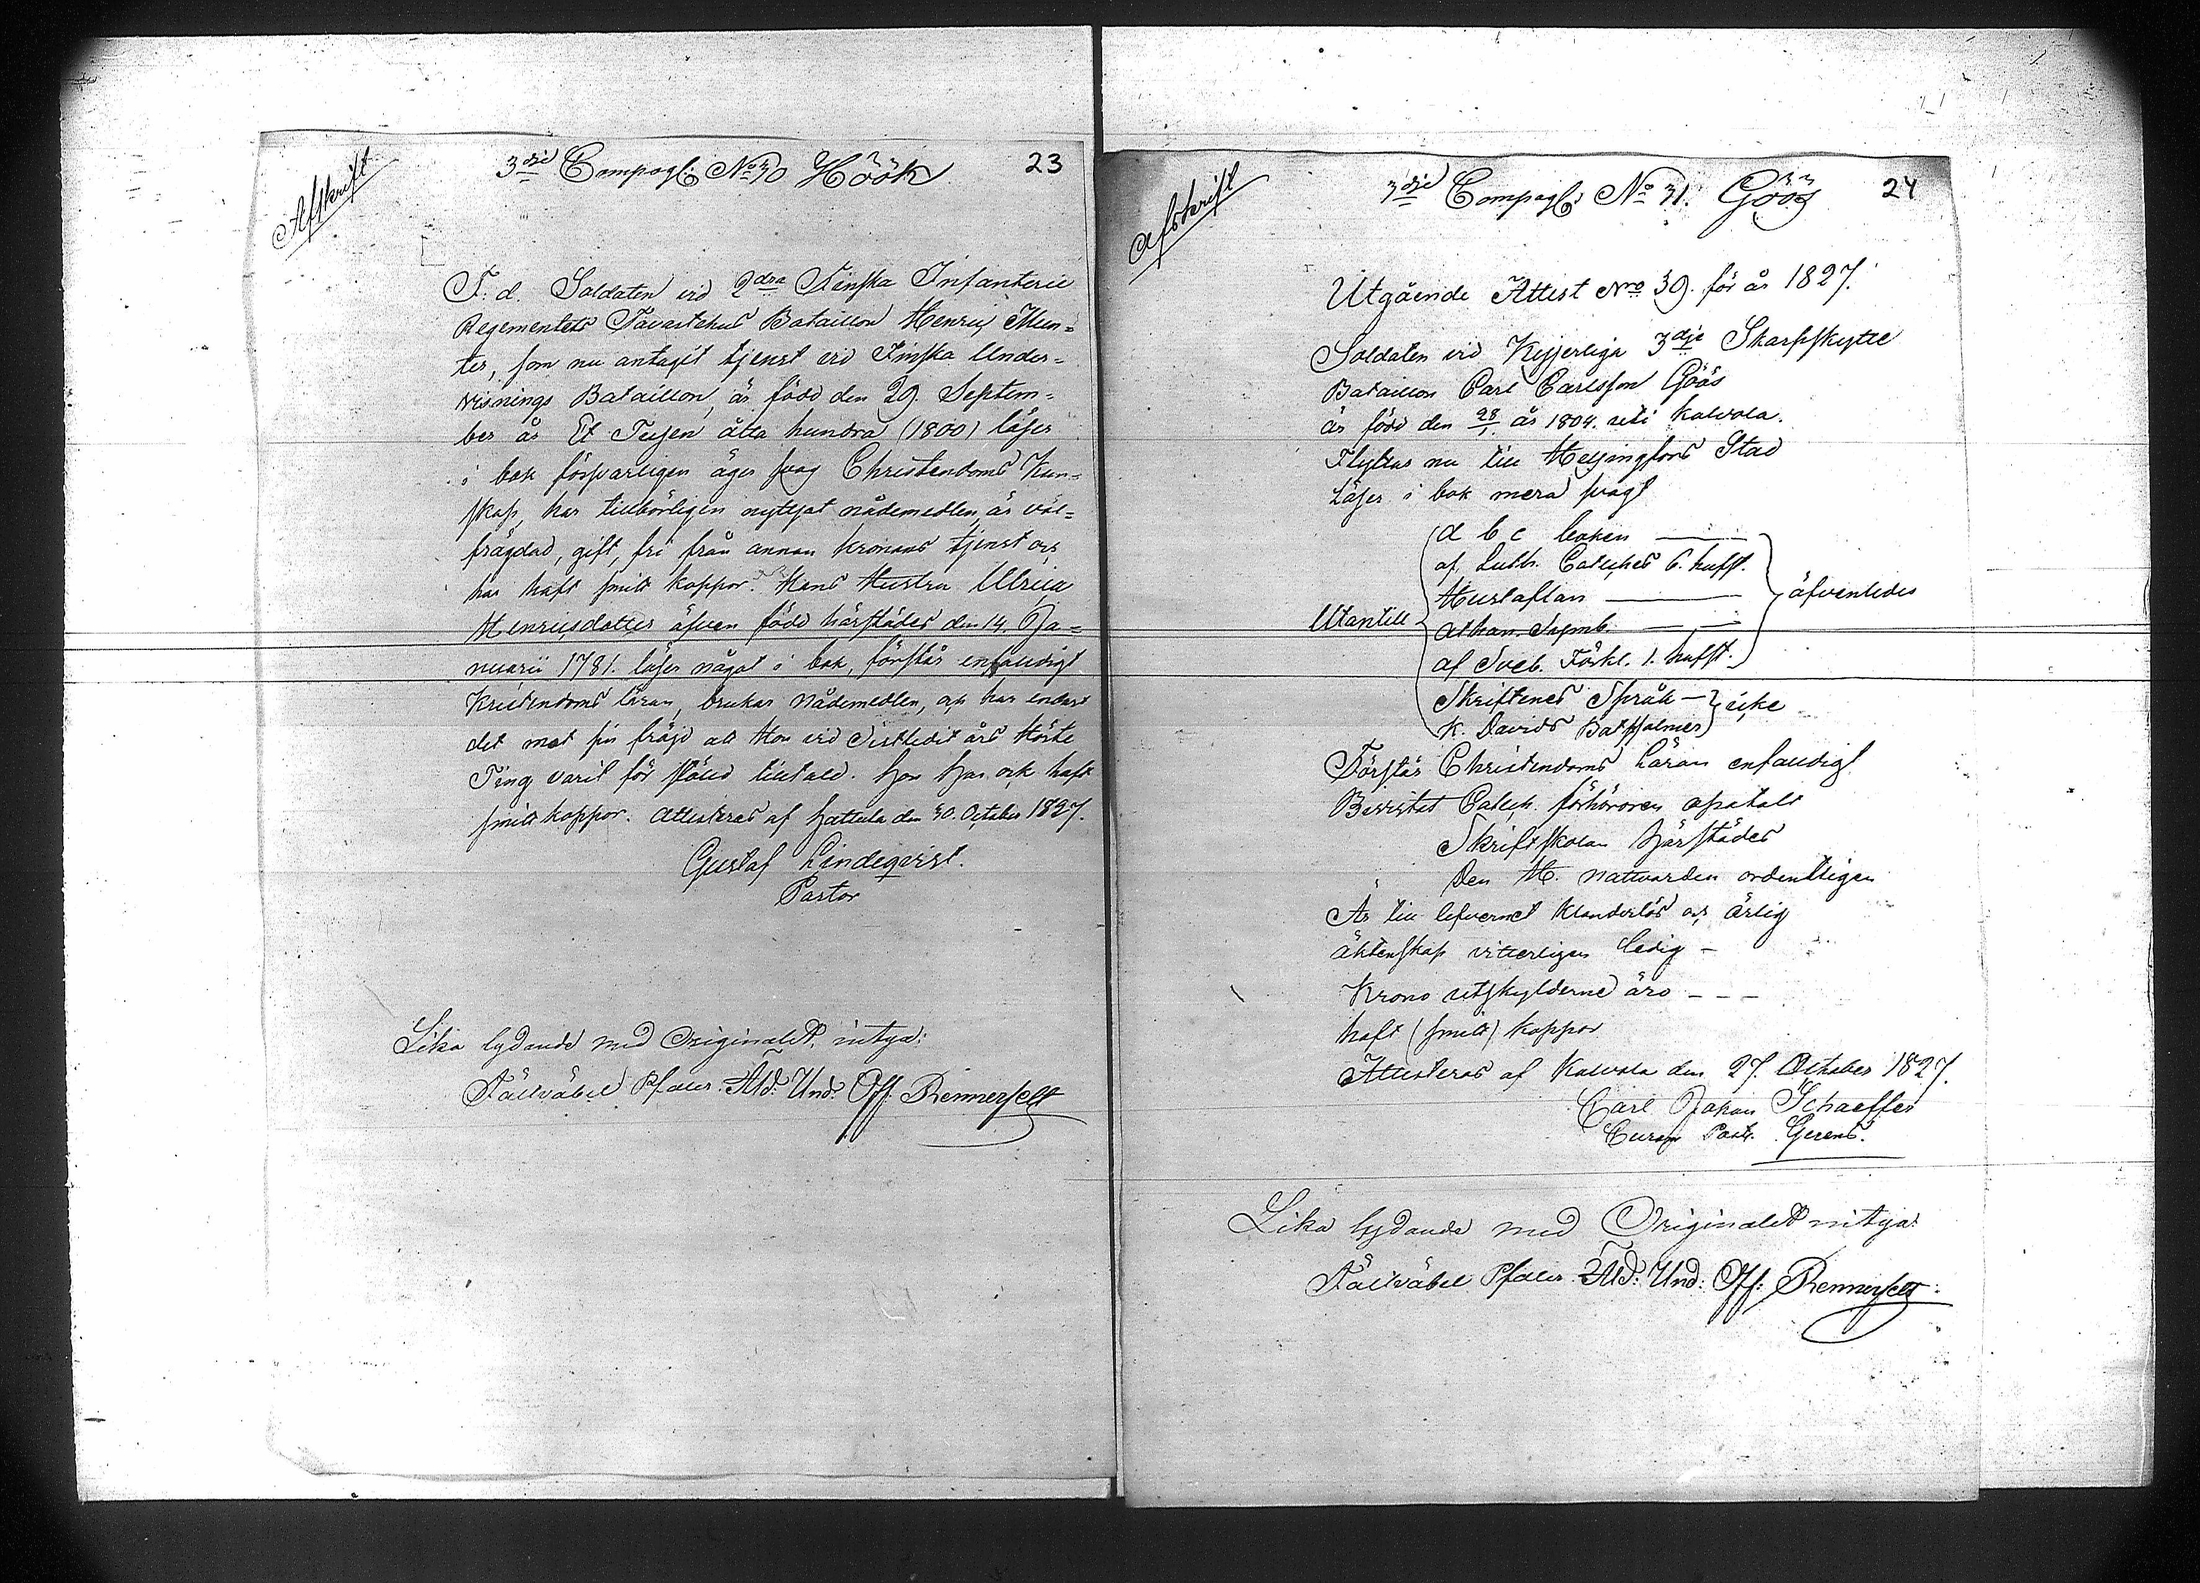 Afskrift
3dje Compagt: No 30 Höök
23
F. d. Soldaten vid 2dra Finska Infanterie
Regementets Tavastehus Bataillon Henric Mun=
ter, som nu antagit tjenst vid Finska Under=
visnings Bataillon, är född den 29. Septem=
ber år Et Tusen åtta hundra (1800) läser
i bok försvarligen äger svag Christendoms Kun=
skap, har tillbörligen nyttjat nådemedlen, är väl=
frägdad, gift, fri från annan Kronans tjenst och
har haft smitt koppor. Hans Hustru Ulrica
Henricsdotter äfven född härstädes den 14. Ja=
nuarii 1781. läser något i bok, förstår enfaldigt
Kristendoms läran, brukar Nådemedlen, och har endast
det mot sin frägd att Hon vid sistledit års Höste
Ting varit för stöld tilltald. hon har ock haft
smitt koppor. Attesteras af Hattula den 30. October 1827.
Gustaf Lindeqvist.
Pastor
Lika lydande med Originalet, intyga:
Fältväbel Pfaler. Und: Off. Rennerfelt
Afskrift
3dje Compagt: No 31. Göös
24
Utgående Attest Nro 39. för år 1827.
Soldaten vid Kejserliga 3dje Skarpskytte
Bataillon Carl Carlsson Göös
är född den 28/1. år 1804. uti Kalvola.
Flyttas nu till Helsingfors Stad
Läser i bok mera svagt
a b c boken —
af Luth. Catches 6. hufst.
Hustaflan —
Utantill
äfvenledes
Athan. Symb. —
af Sveb. Förkl. 1. hufst.
Skriftenes Språk —
icke
K. Davids Botpsalmer
Förstår Christendoms Läran enfaldigt
Bevistat Catech. förhören
Skriftskolan härstädes
Den H. Nattvarden ordentligen
Är till lefvernet Klanderlös och ärlig
äktenskap vitterligen ledig —
Krono utskylderne äro - - -
haft (smitt) koppor
Attesteras af Kalvola den 27. October 1827.
Carl Johan Schaeffer
Curam Past. Gerens.
Lika lydande med Originalet intyga:
Fältväbel Pfaler. Und: Off: Rennerfelt: